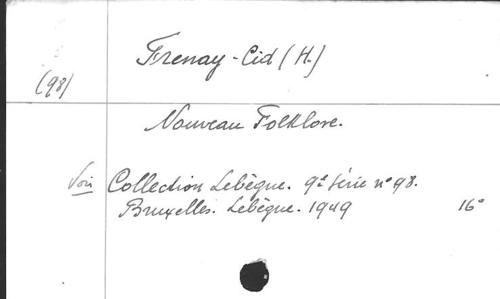 Frenay-Cid (H.)
(98)
Nouveau Folklore.
Voir Collection Lebègue. 9e série n° 98.
Bruxelles. Lebègue. 1949 16°